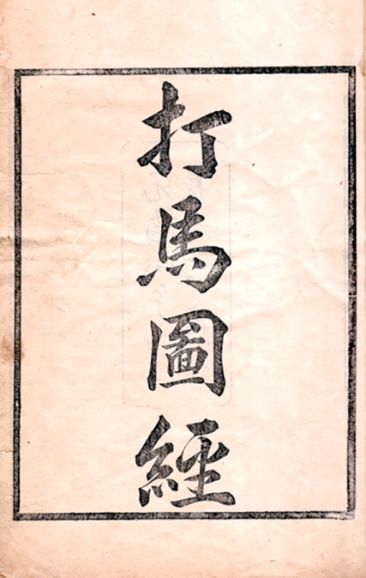 打馬圖經